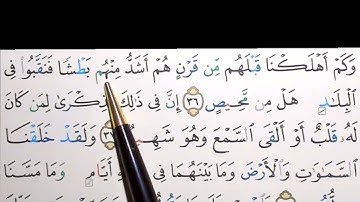 وَكَمْ أَهْلَكْنَا قَبْلَهُم مِّن قَرْنٍ هُمْ أَشَدُّ مِنْهُم بَطْشًا فَنَقَّبُوا۟ فِى
ٱلْبِلَـٰدِ هَلْ مِن مَّحِيصٍ ٣٦ إِنَّ فِى ذَٰلِكَ لَذِكْرَىٰ لِمَن كَانَ
لَهُۥ قَلْبٌ أَوْ أَلْقَى ٱلسَّمْعَ وَهُوَ شَهِيدٌ ٣٧ وَلَقَدْ خَلَقْنَا
ٱلسَّمَـٰوَٰتِ وَٱلْأَرْضَ وَمَا بَيْنَهُمَا فِى سِتَّةِ أَيَّامٍ وَمَا مَسَّنَا